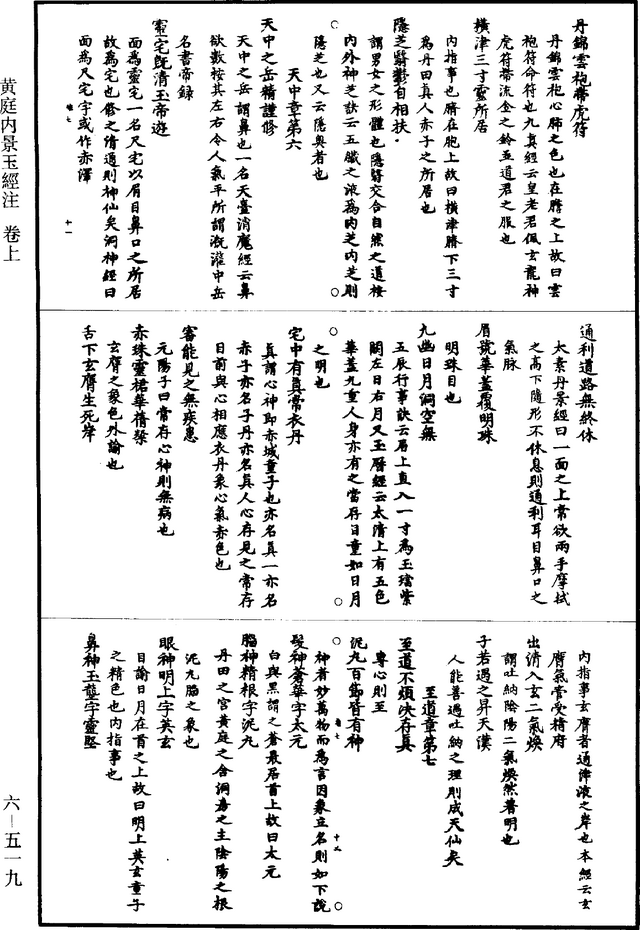 黄庭内景玉經注 卷上
六—五一九
丹錦雲袍帶虎符
丹錦雲袍心肺之色也在臍之上故曰雲
袍符命符也九真經云皇老君佩玄龍神
虎符帶流金之鈴五道君之服也
橫津三寸靈所居
內指事也臍在胞上故曰橫津臍下三寸
為丹田真人赤子之所居也
隱芝翳鬱自相扶
謂男女之形體也隱翳交合自然之道按
內外神芝訣云五臟之液為內芝內芝則
隱芝也又云隱奧者也
天中章第六
天中之岳精謹修
天中之岳謂鼻也一名天臺消魔經云鼻
欲數按其左右令人氣平所謂溉灌中岳
名書帝錄
靈宅既清玉帝遊
面為靈宅一名尺宅以眉目鼻口之所居
故為宅也修之清通則神仙矣洞神經曰
面為尺宅字或作赤澤
卷七
十一
通利道路無終休
太素丹景經曰一面之上常欲兩手摩拭
之高下隨形不休息則通利耳目鼻口之
氣脉
眉號華蓋覆明珠
明珠目也
九幽日月洞空無
五辰行事訣云眉上直入一寸為玉璫紫
闕左日右月又玉曆經云太清上有五色
華蓋九重人身亦有之當存目童如日月
之明也
宅中有真常衣丹
真謂心神即赤城童子也亦名真一亦名
赤子亦名子丹亦名真人心存見之常存
目前與心相應衣丹象心氣赤色也
審能見之無疾患
元陽子曰常存心神則無病也
赤珠靈裙華蒨粲
玄膺之象色外諭也
舌下玄膺生死岸
內指事玄膺者通津液之岸也本經云玄
膺氣管受精府
出清入玄二氣煥
謂吐納陰陽二氣煥然著明也
子若遇之昇天漢
人能善遇吐納之理則成天仙矣
至道章第七
至道不煩決存真
專心則至
泥丸百節皆有神
卷七
十二
神者妙萬物而為言因象立名則如下說
髮神蒼華字太元
白與黑謂之蒼最居首上故曰太元
腦神精根字泥丸
丹田之宮黃庭之舍洞房之主陰陽之根
泥丸腦之象也
眼神明上字英玄
目諭日月在首之上故曰明上英玄童子
之精色也內指事也
鼻神玉壟字靈堅